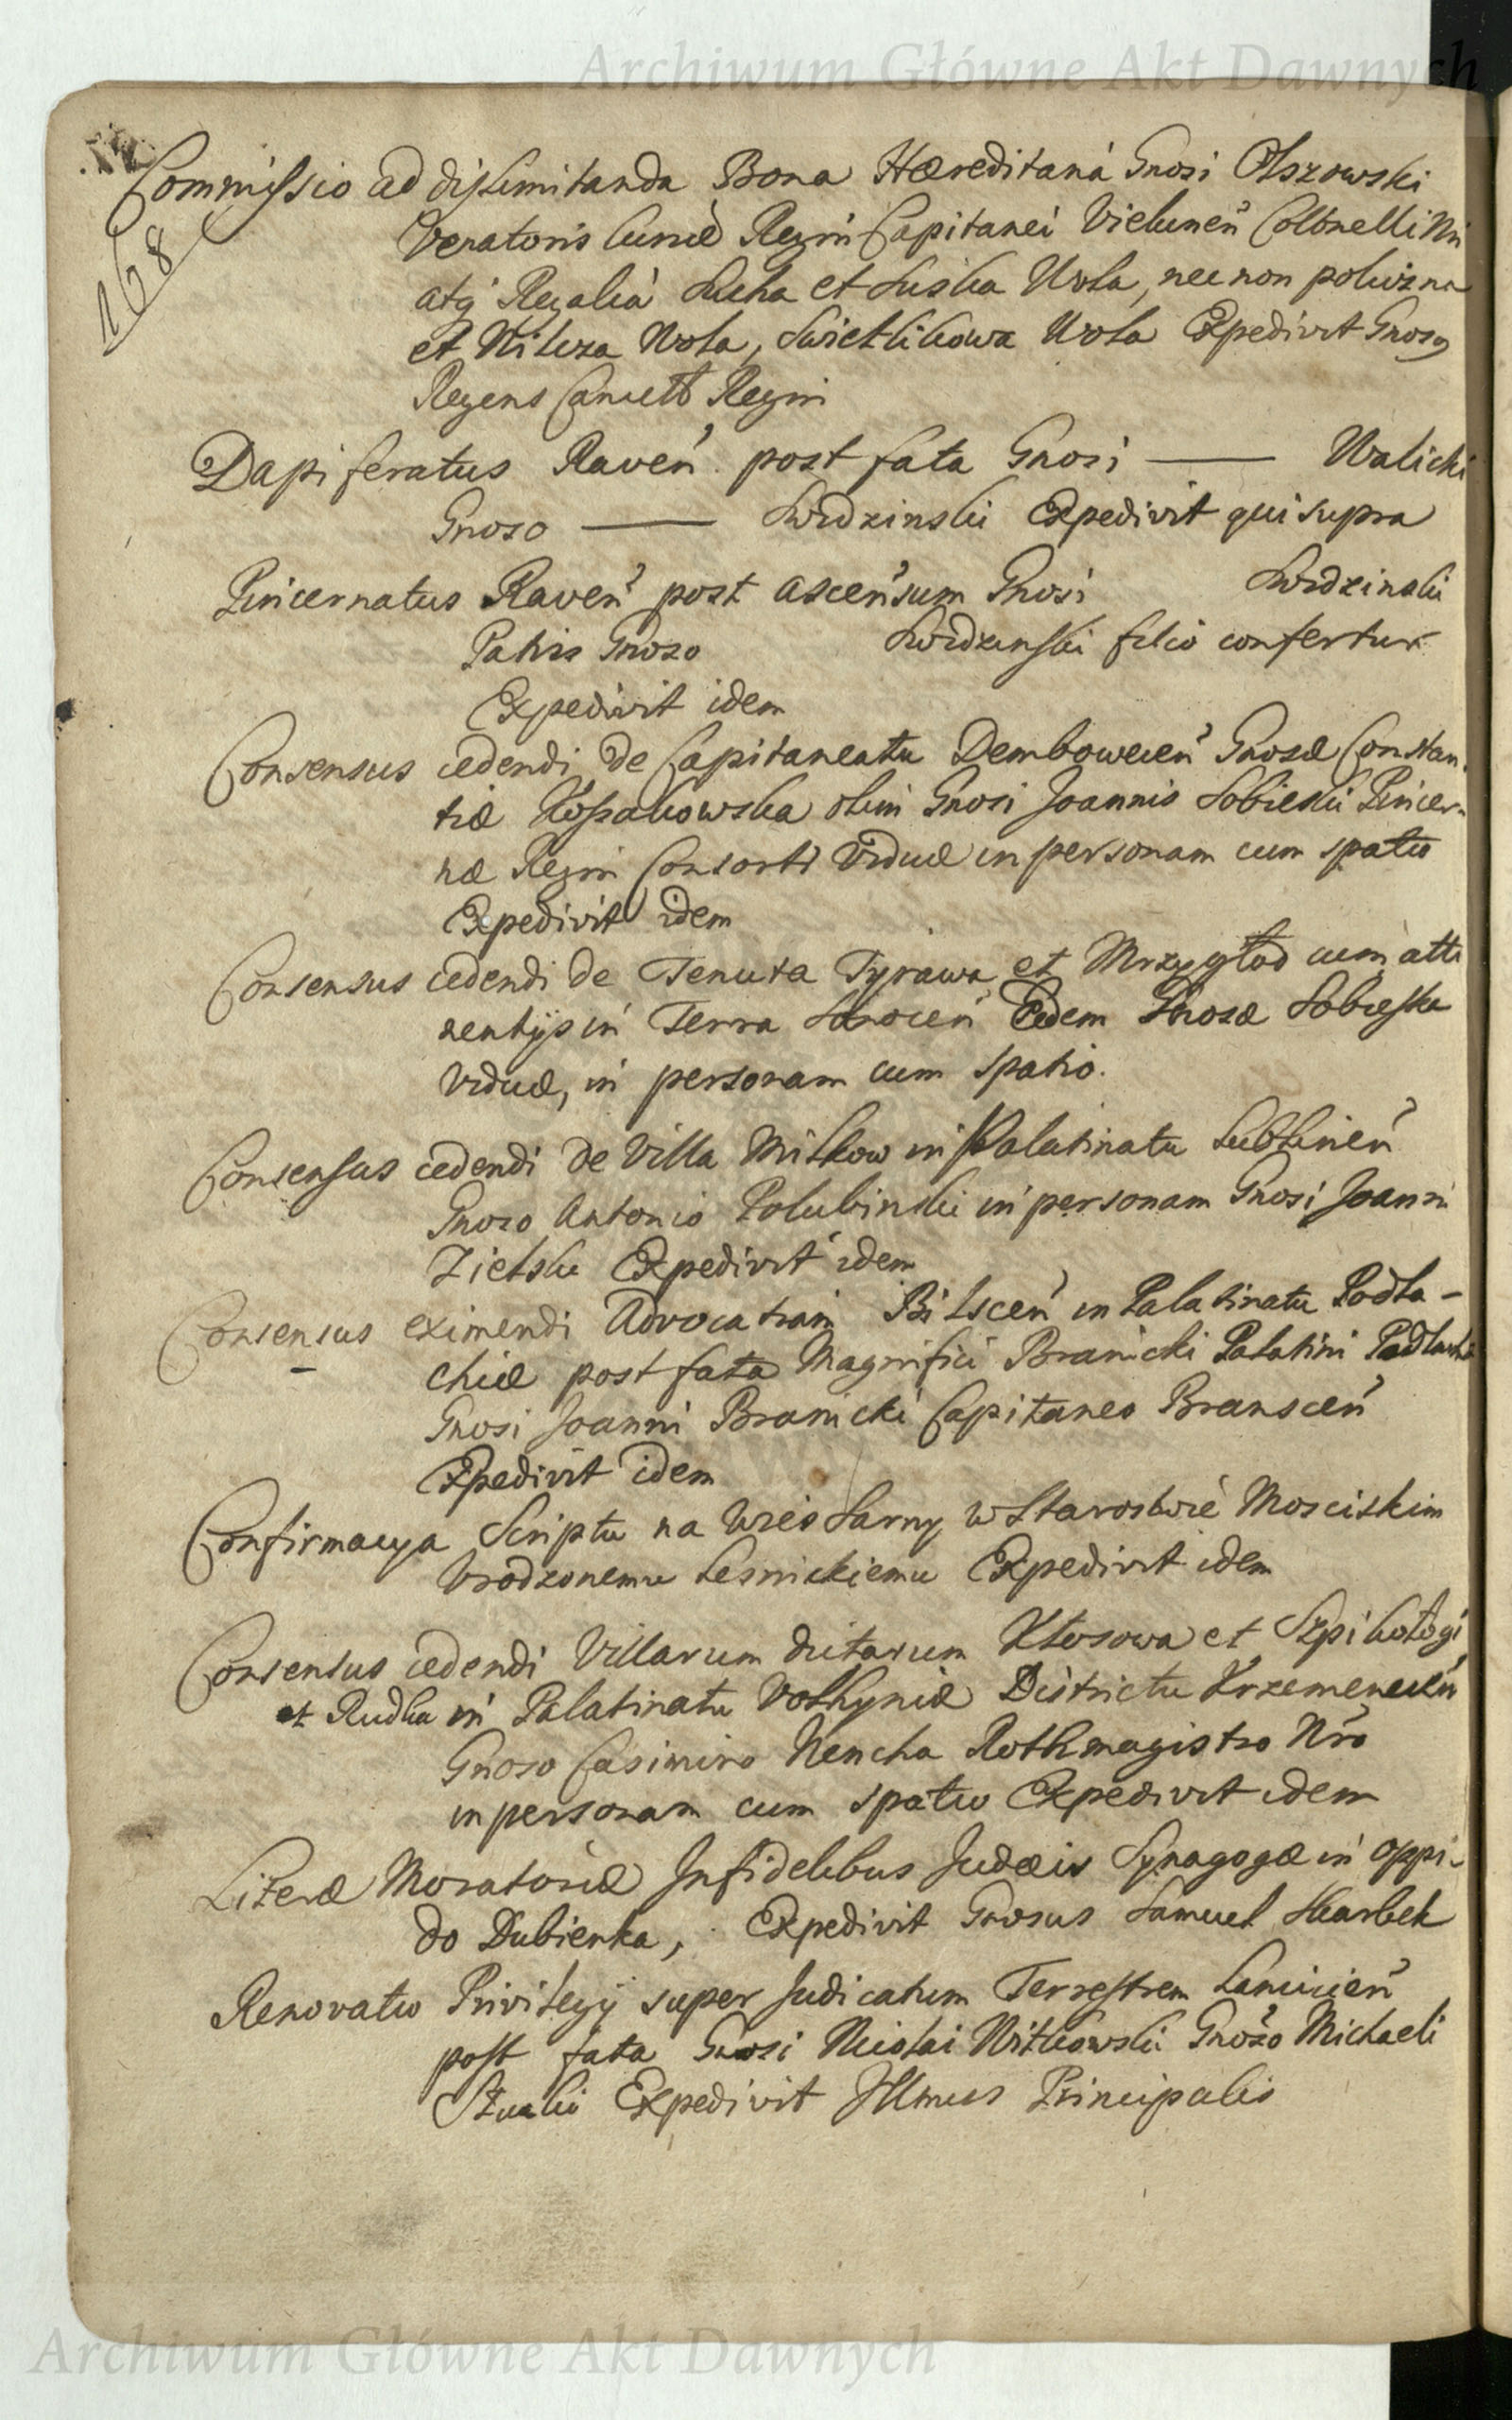 Archiwum Główne Akt Dawnych
168
Commissio ad dislimitanda Bona Hæreditaria Gnosi Olszowski
Venatoris Regni Capitanei Vielunen̄ Collonelli Nri
atq Regalia et Wola, nec non
et Wilcza Wola, Swietlikowa Wola Expedivit Gnosq
Regens Cancell Regni
Dapiferatus Raven̄ post fata Gnosi —— Walicki
Gnoso —— Swidzinski Expedivit qui supra
Pincernatus Raven̄ post ascen̄sum Gnosi Swidzinski
Patris Gnoso Swidzinski filio confertur
Expedivit idem
Consensus cedendi de Capitaneatu Dembowecen̄ Gnosæ Constan-
tiæ Kossakowska olim Gnosi Joannis Sobieski Pincer-
næ Regni Consorti viduæ in personam cum spatio
Expedivit idem
Consensus cedendi de Tenuta Tyrawa et Mrzygłod cum atti
nentijs in Terra Sanocen̄ Eidem Gnosæ Sobieska
viduæ, in personam cum spatio.
Consensus cedendi de Villa Milkow in Palatinatu Lublinen̄
Gnoso Antonio Polubinski in personam Gnosi Joanni
Expedivit idem
Consensus eximendi Advocatiam Bilscen̄ in Palatinatu Podla-
chiæ post fata Magnifici Branicki Palatini Podlachiæ
Gnosi Joanni Branicki Capitaneo Branscen̄
Expedivit idem
Confirmacya Scriptu na Wies Sarny w Starostwie Mosciskim
Urodzonemu Lesnickiemu Expedivit idem
Consensus cedendi Villarum dictarum Kłosowa et Szpikołogi
et Rudka in Palatinatu Volhyniæ Districtu Krzemenecen̄
Gnoso Casimiro Nencha Rothmagistro Nro
in personam cum spatio Expedivit idem
Literæ Moratoriæ Infidelibus Judæis Synagogæ in oppi-
do Dubienka, Expedivit Gnosus Samuel Skarbek
Renovatio Privilegij super Judicatum Terrestrem Lancicien̄
post fata Gnosi Nicolai Witkowski Gnoso Michaeli
Expedivit Illmus Principalis
Archiwum Główne Akt Dawnych